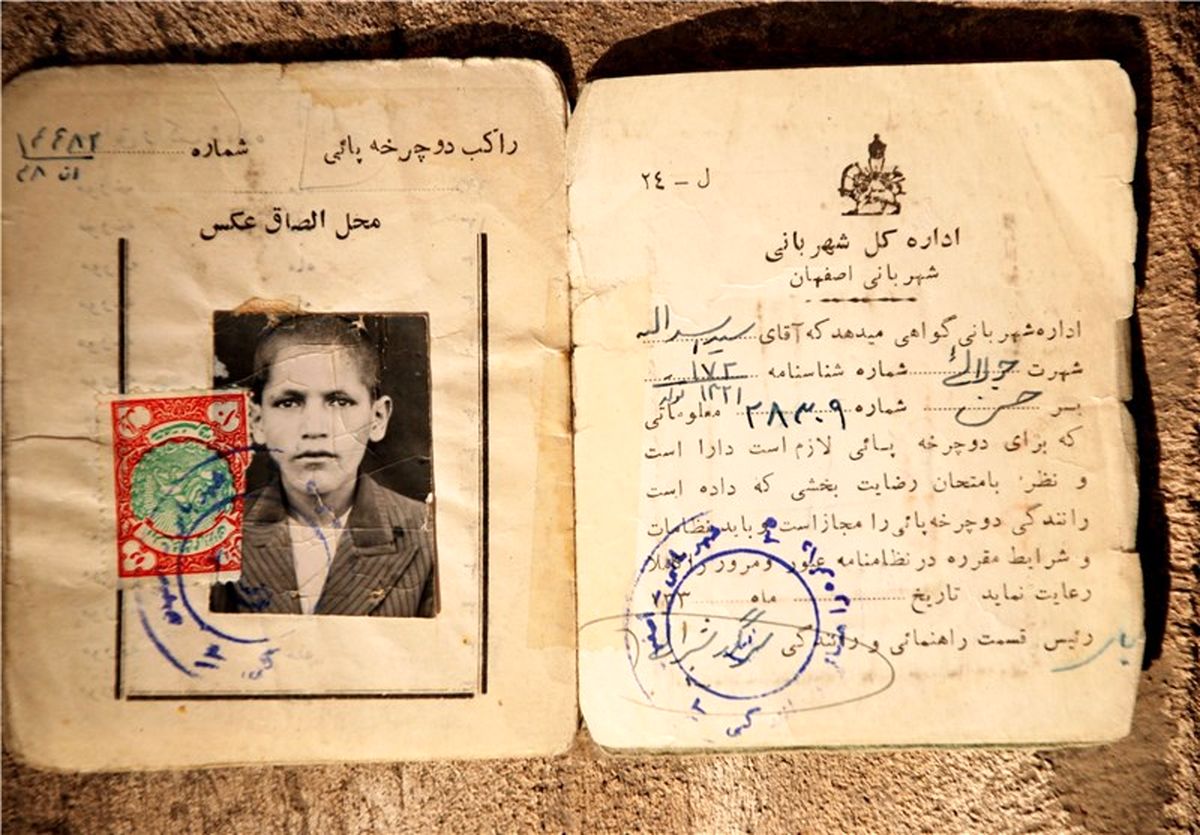 ل - ۲۴
اداره کل شهربانی
شهربانی اصفهان
اداره شهربانی گواهی میدهد که آقای سید اسداله
شهرت جلالی شماره شناسنامه ۱۷۲
پسر حسن شماره ۲۸۳۰۹ معلوماتی
که برای دوچرخه پائی لازم است دارا است
و نظر بامتحان رضایت بخشی که داده است
رانندگی دوچرخه پائی را مجاز است و باید نظامات
و شرایط مقرره در نظامنامه عبور و مرور را کاملا
رعایت نماید تاریخ ماه ۱۳۳
رئیس قسمت راهنمائی و رانندگی
راکب دوچرخه پائی شماره ۱۴۴۸۲
محل الصاق عکس